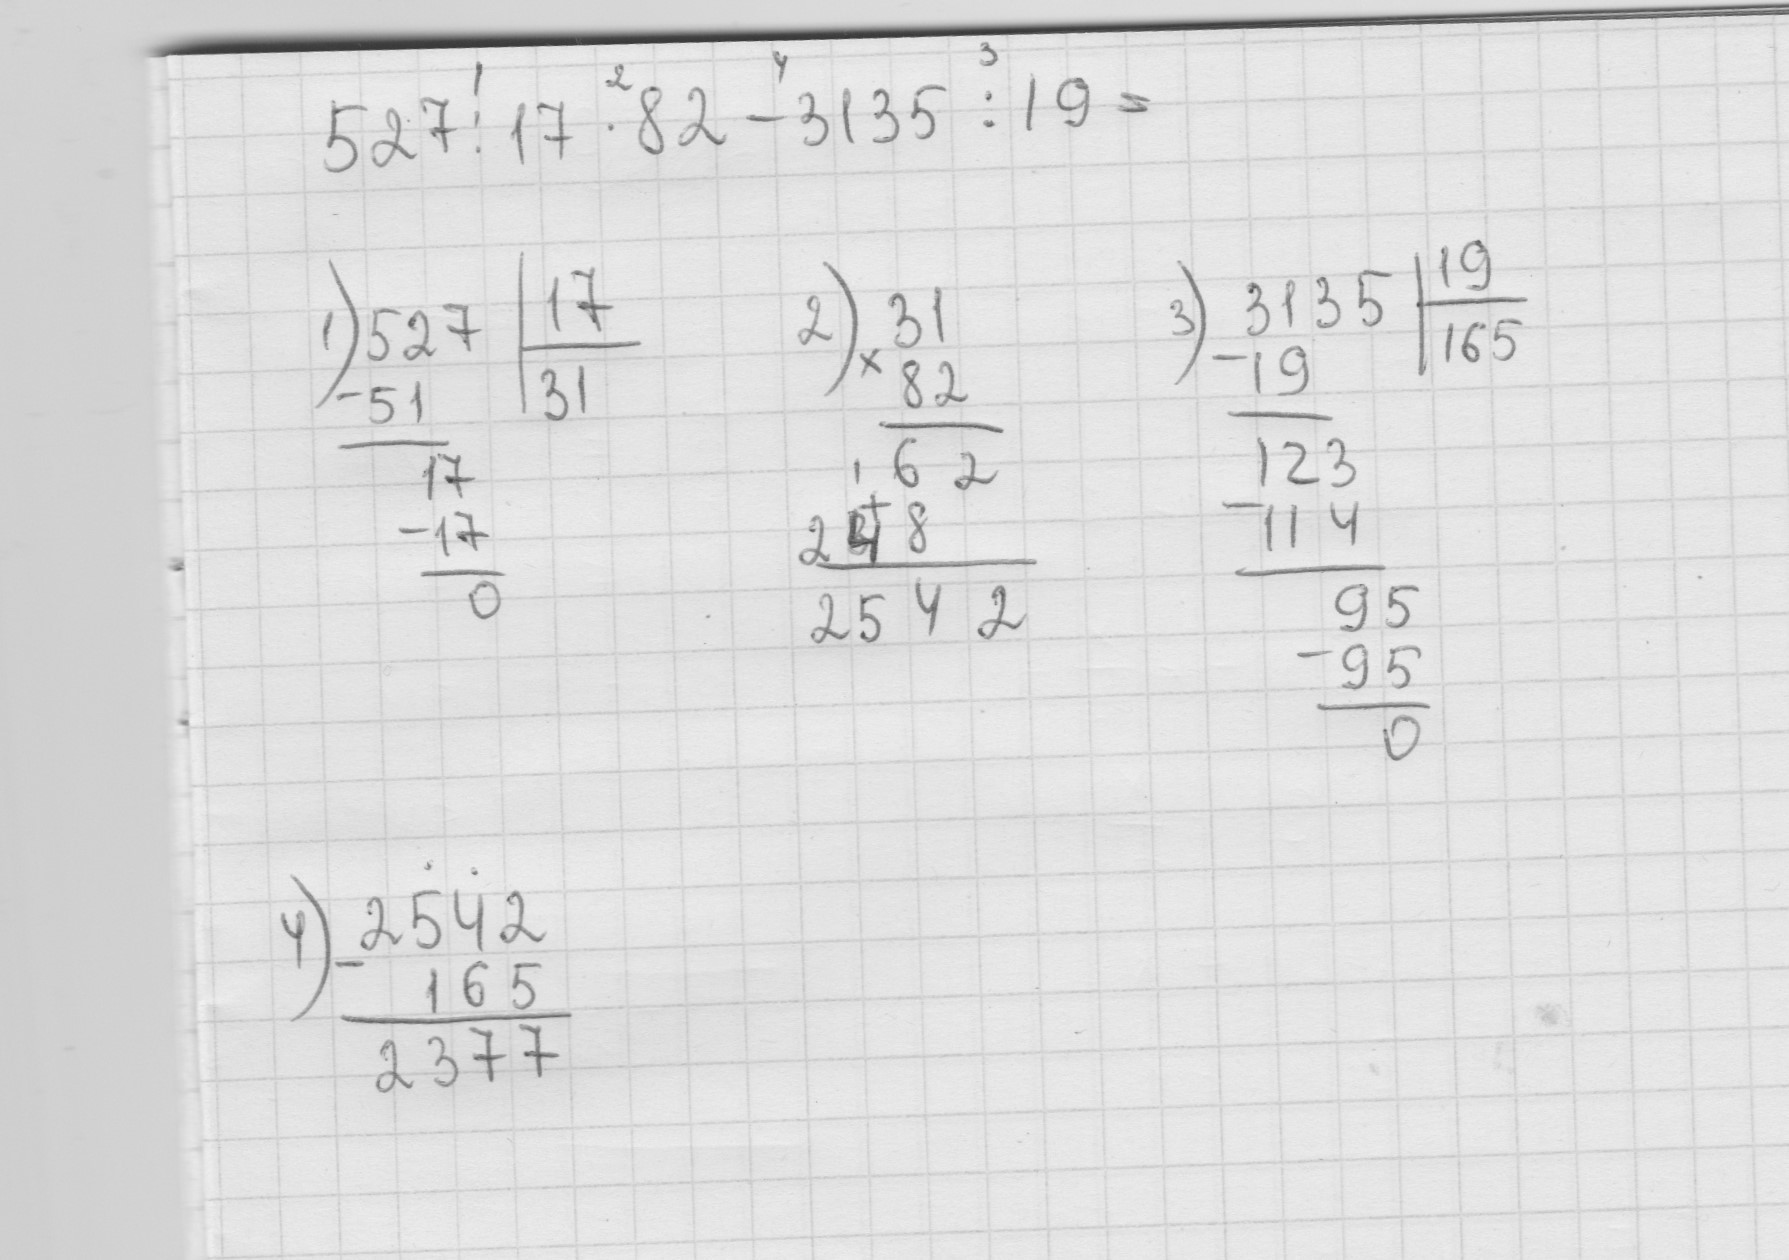 527 : 17 · 82 - 3135 : 19 =
1 2 4 3
1) 527 | 17
-51 | 31
17
-17
0
2) 31
× 82
1 6 2
+
248
2542
3) 3135 | 19
-19 | 165
123
-114
95
-95
0
4) 2542
- 165
2377